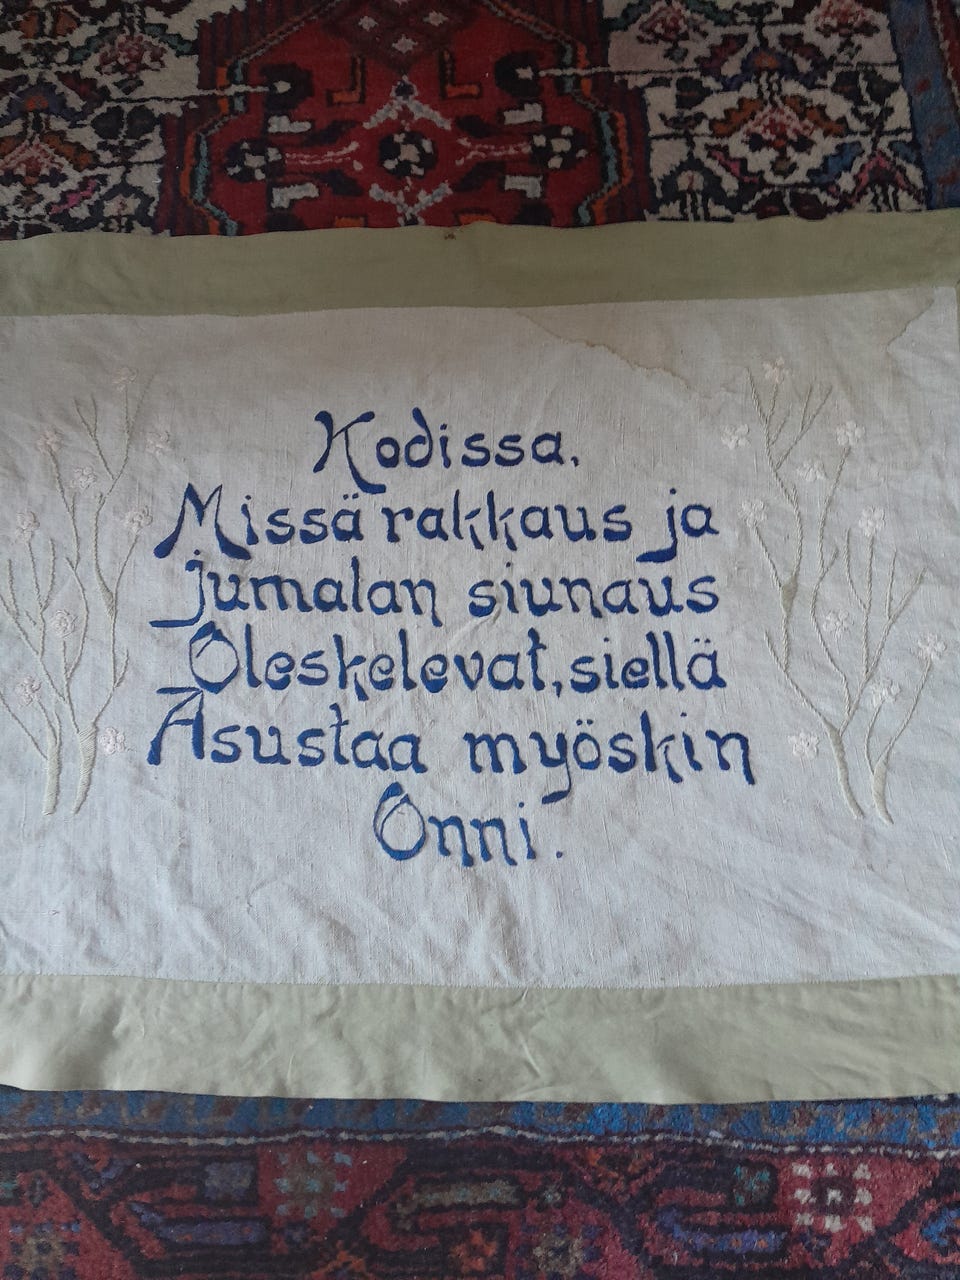 Kodissa,
Missä rakkaus ja
jumalan siunaus
Oleskelevat, siellä
Asustaa myöskin
Onni.